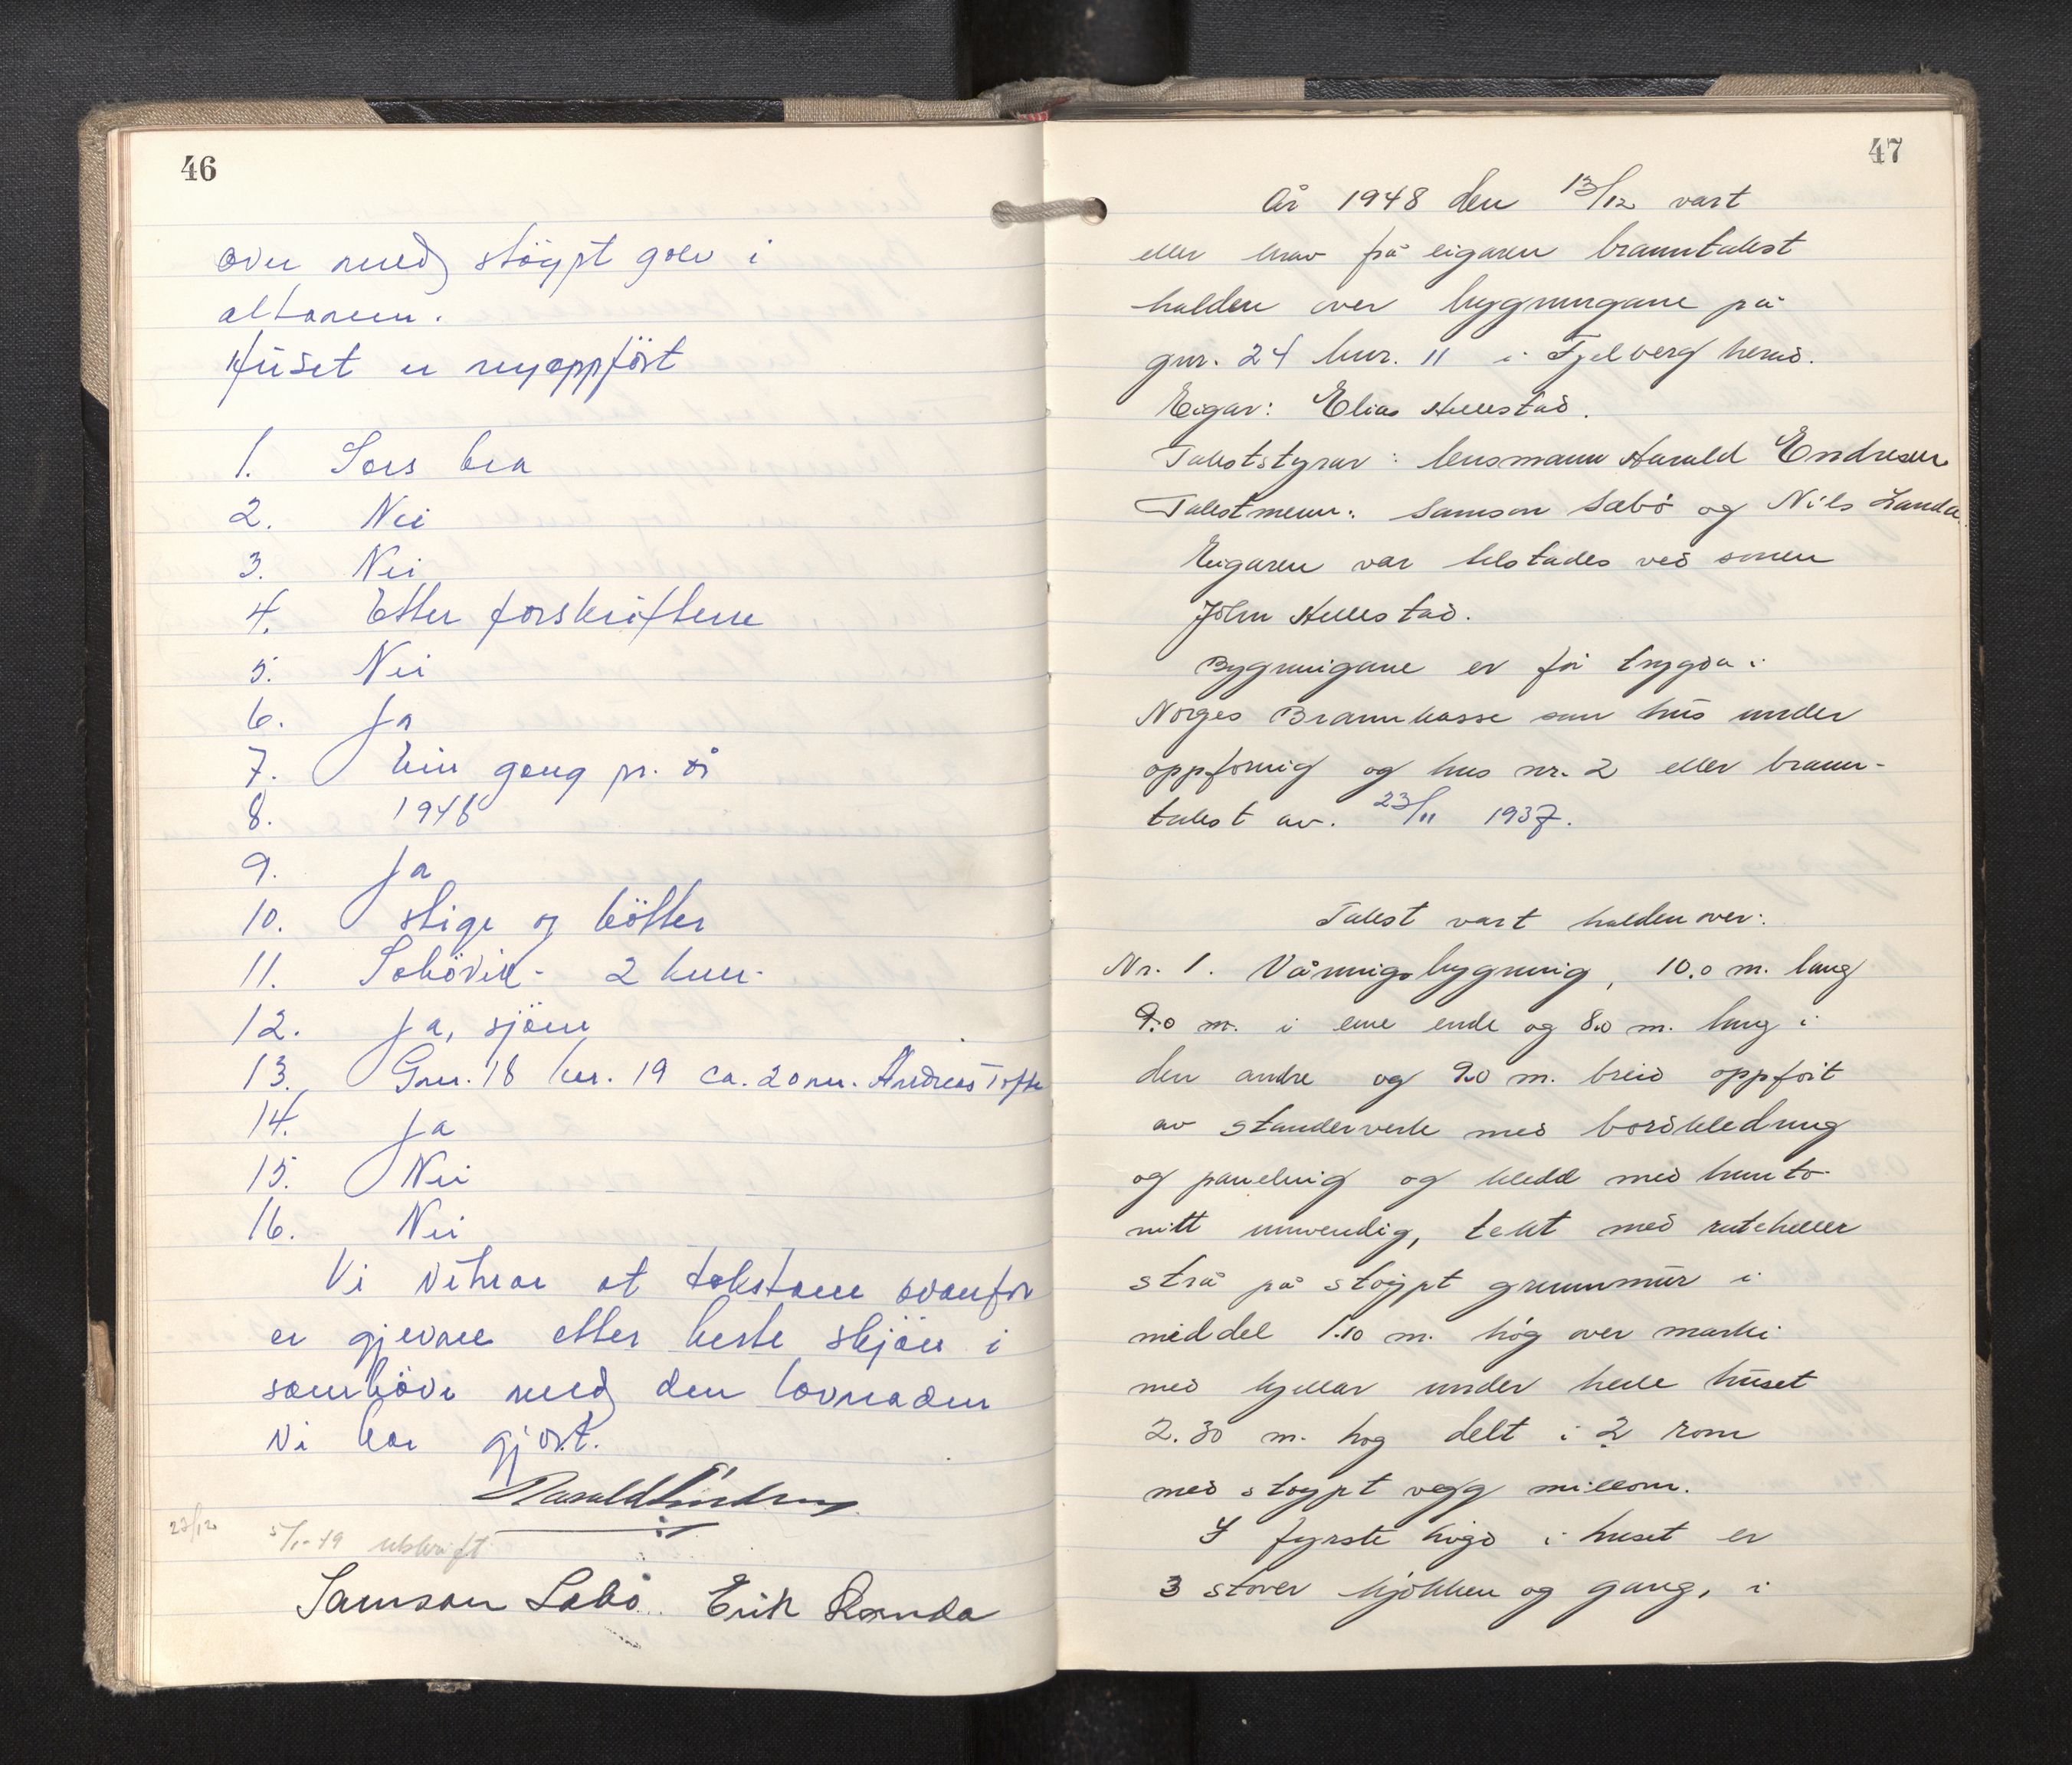 46
over med støypt golv i
altanen.
Huset er nyoppført
1. Sers bra
2. Nei
3. Nei
4. Etter forskriftene
5. Nei
6. Ja
7. Ein gong pr. år
8. 1948
9. Ja
10. Stige og bötter
11. Sæbövik - 2 km.
12. Ja, sjöen
13. Gnr. 18 bnr. 19 ca. 20 m. Andreas Tofte
14. Ja
15. Nei
16. Nei
Vi vitnar at takstane ovanfor
er gjevne etter beste skjön i
samhöve med den lovnaden
vi har gjort.
Harald Endresen
23/12 5/1-49 utskrift
Samson Sæbö. Erik Landa
47
År 1948 den 13/12 vart
etter krav frå eigaren branntakst
halden over bygningane på
gnr. 24 bnr. 11 i Fjelberg herad.
Eigar: Elias Hellestad.
Takststyrar: lensmann Harald Endresen
Takstmenn: Samson Sæbö og Nils Landa.
Eigaren var tilstades ved sonen
John Hellestad.
Bygningane er för trygda i
Norges Brannkasse som hus under
oppföring og hus nr. 2 etter brann-
takst av. 23/11 1937.
Takst vart halden over:
Nr. 1. Våningsbygning, 10.0 m. lang
9.0 m. i eine ende og 8.0 m. lang i
den andre og 9.0 m. breid oppfört
av standerverk med bordkledning
og panelning og kledd med hunto-
nitt innvendig, tekt med ruteheller
strå på stöypt grunnmur i
middel 1.10 m. hög over marki
med kjellar under heile huset
2.30 m. hög delt i 2 rom
med stöypt vegg millom.
I fyrste högd i huset er
3 stover kjökken og gang, i